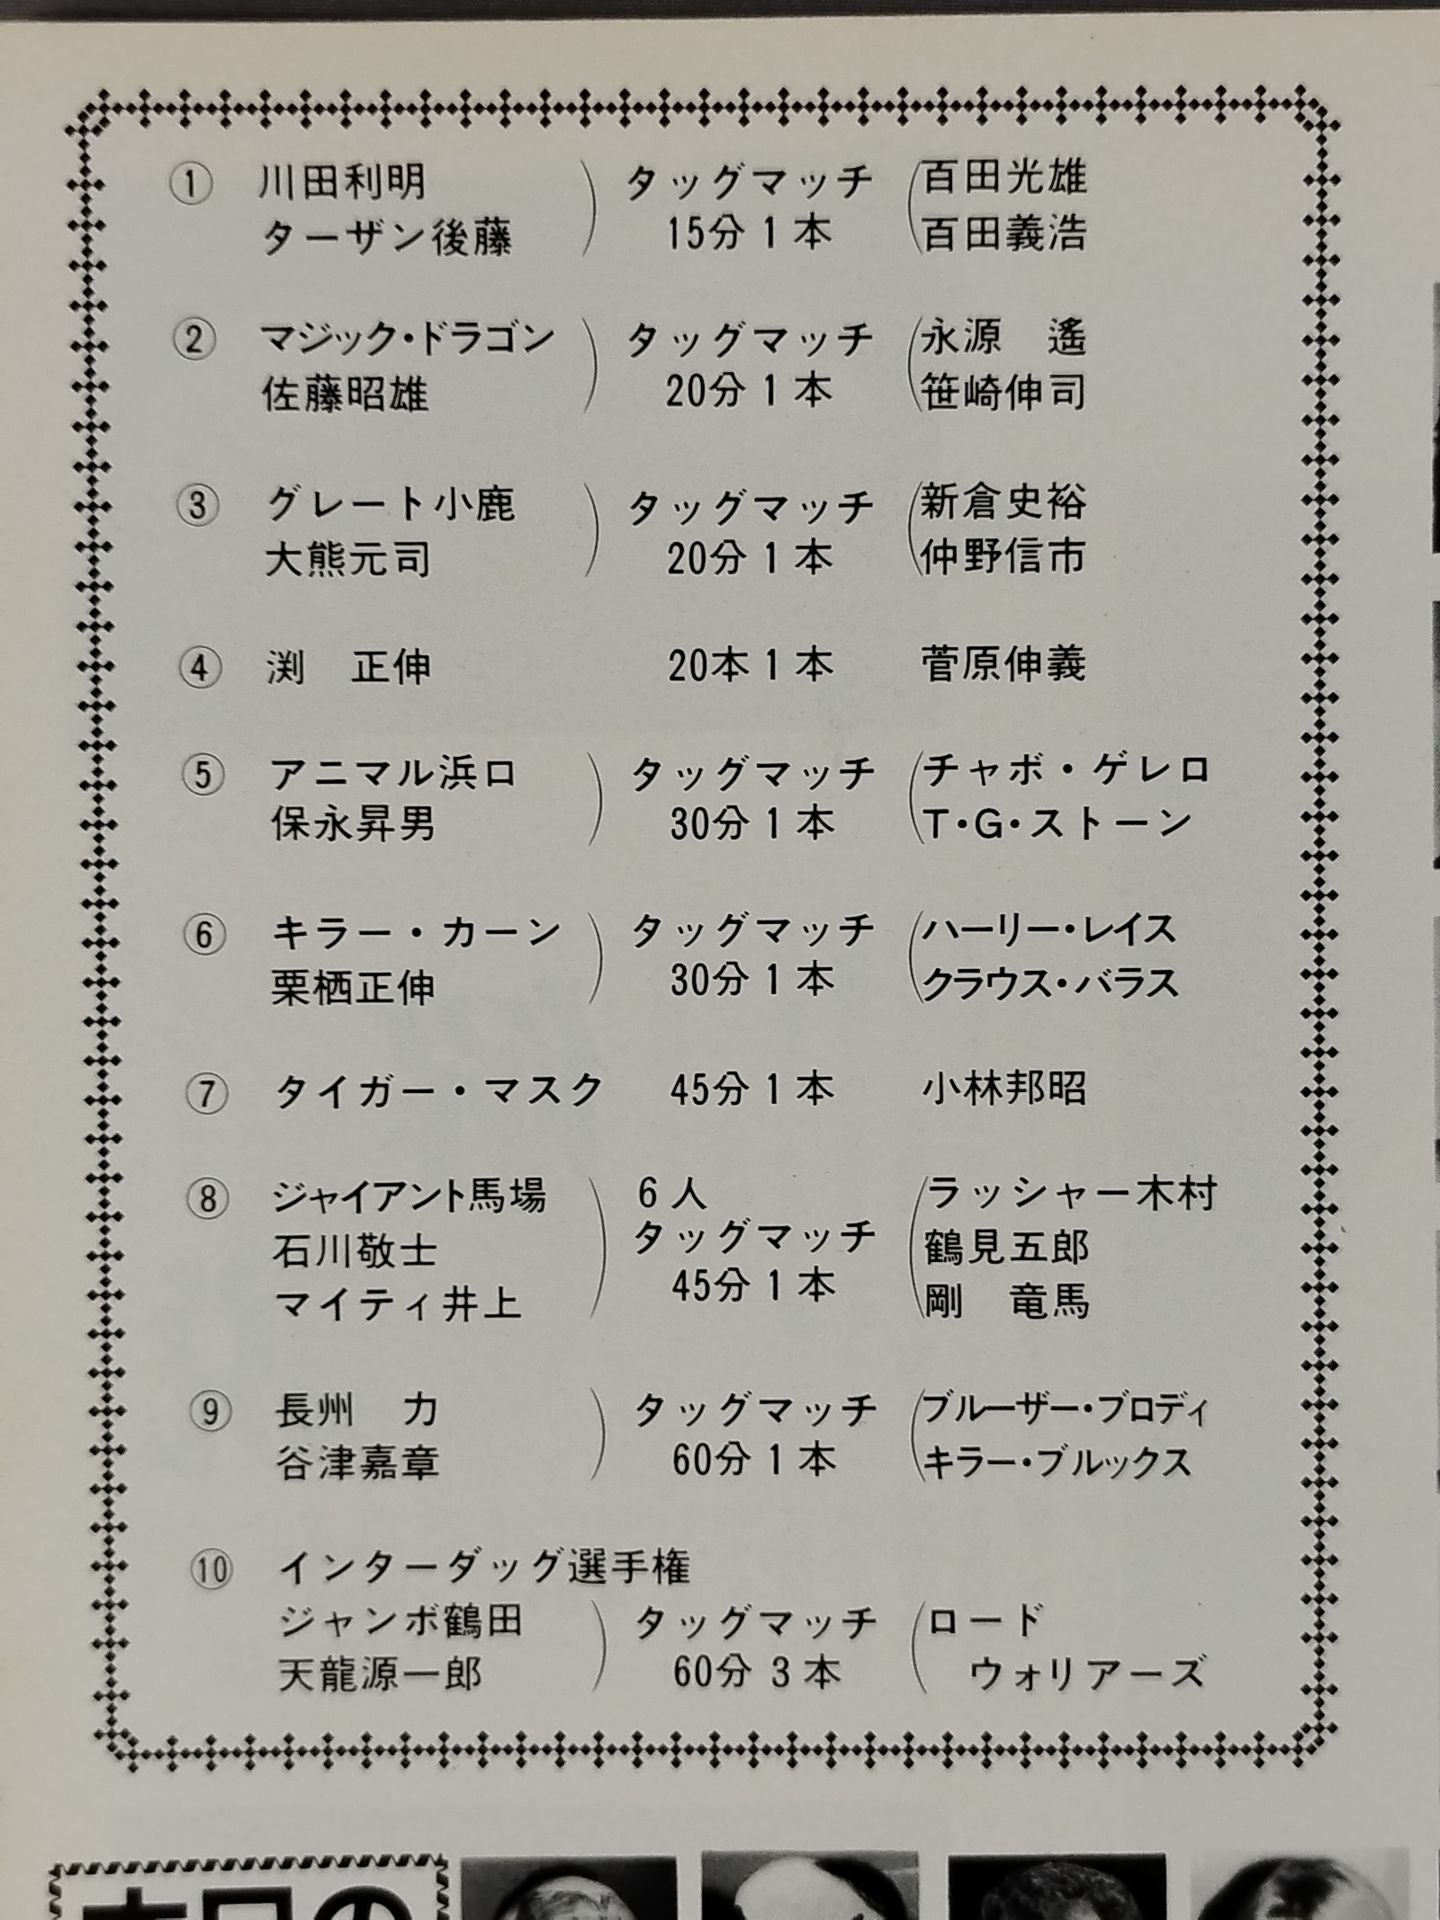 ① 川田利明 タッグマッチ 百田光雄
ターザン後藤 15分1本 百田義浩
② マジック・ドラゴン タッグマッチ 永源 遙
佐藤昭雄 20分1本 笹崎伸司
③ グレート小鹿 タッグマッチ 新倉史裕
大熊元司 20分1本 仲野信市
④ 渕 正伸 20本1本 菅原伸義
⑤ アニマル浜口 タッグマッチ チャボ・ゲレロ
保永昇男 30分1本 T・G・ストーン
⑥ キラー・カーン タッグマッチ ハーリー・レイス
栗栖正伸 30分1本 クラウス・バラス
⑦ タイガー・マスク 45分1本 小林邦昭
⑧ ジャイアント馬場 6人 ラッシャー木村
石川敬士 タッグマッチ 鶴見五郎
マイティ井上 45分1本 剛 竜馬
⑨ 長州 力 タッグマッチ ブルーザー・ブロディ
谷津嘉章 60分1本 キラー・ブルックス
⑩ インターダッグ選手権
ジャンボ鶴田 タッグマッチ ロード
天龍源一郎 60分3本 ウォリアーズ